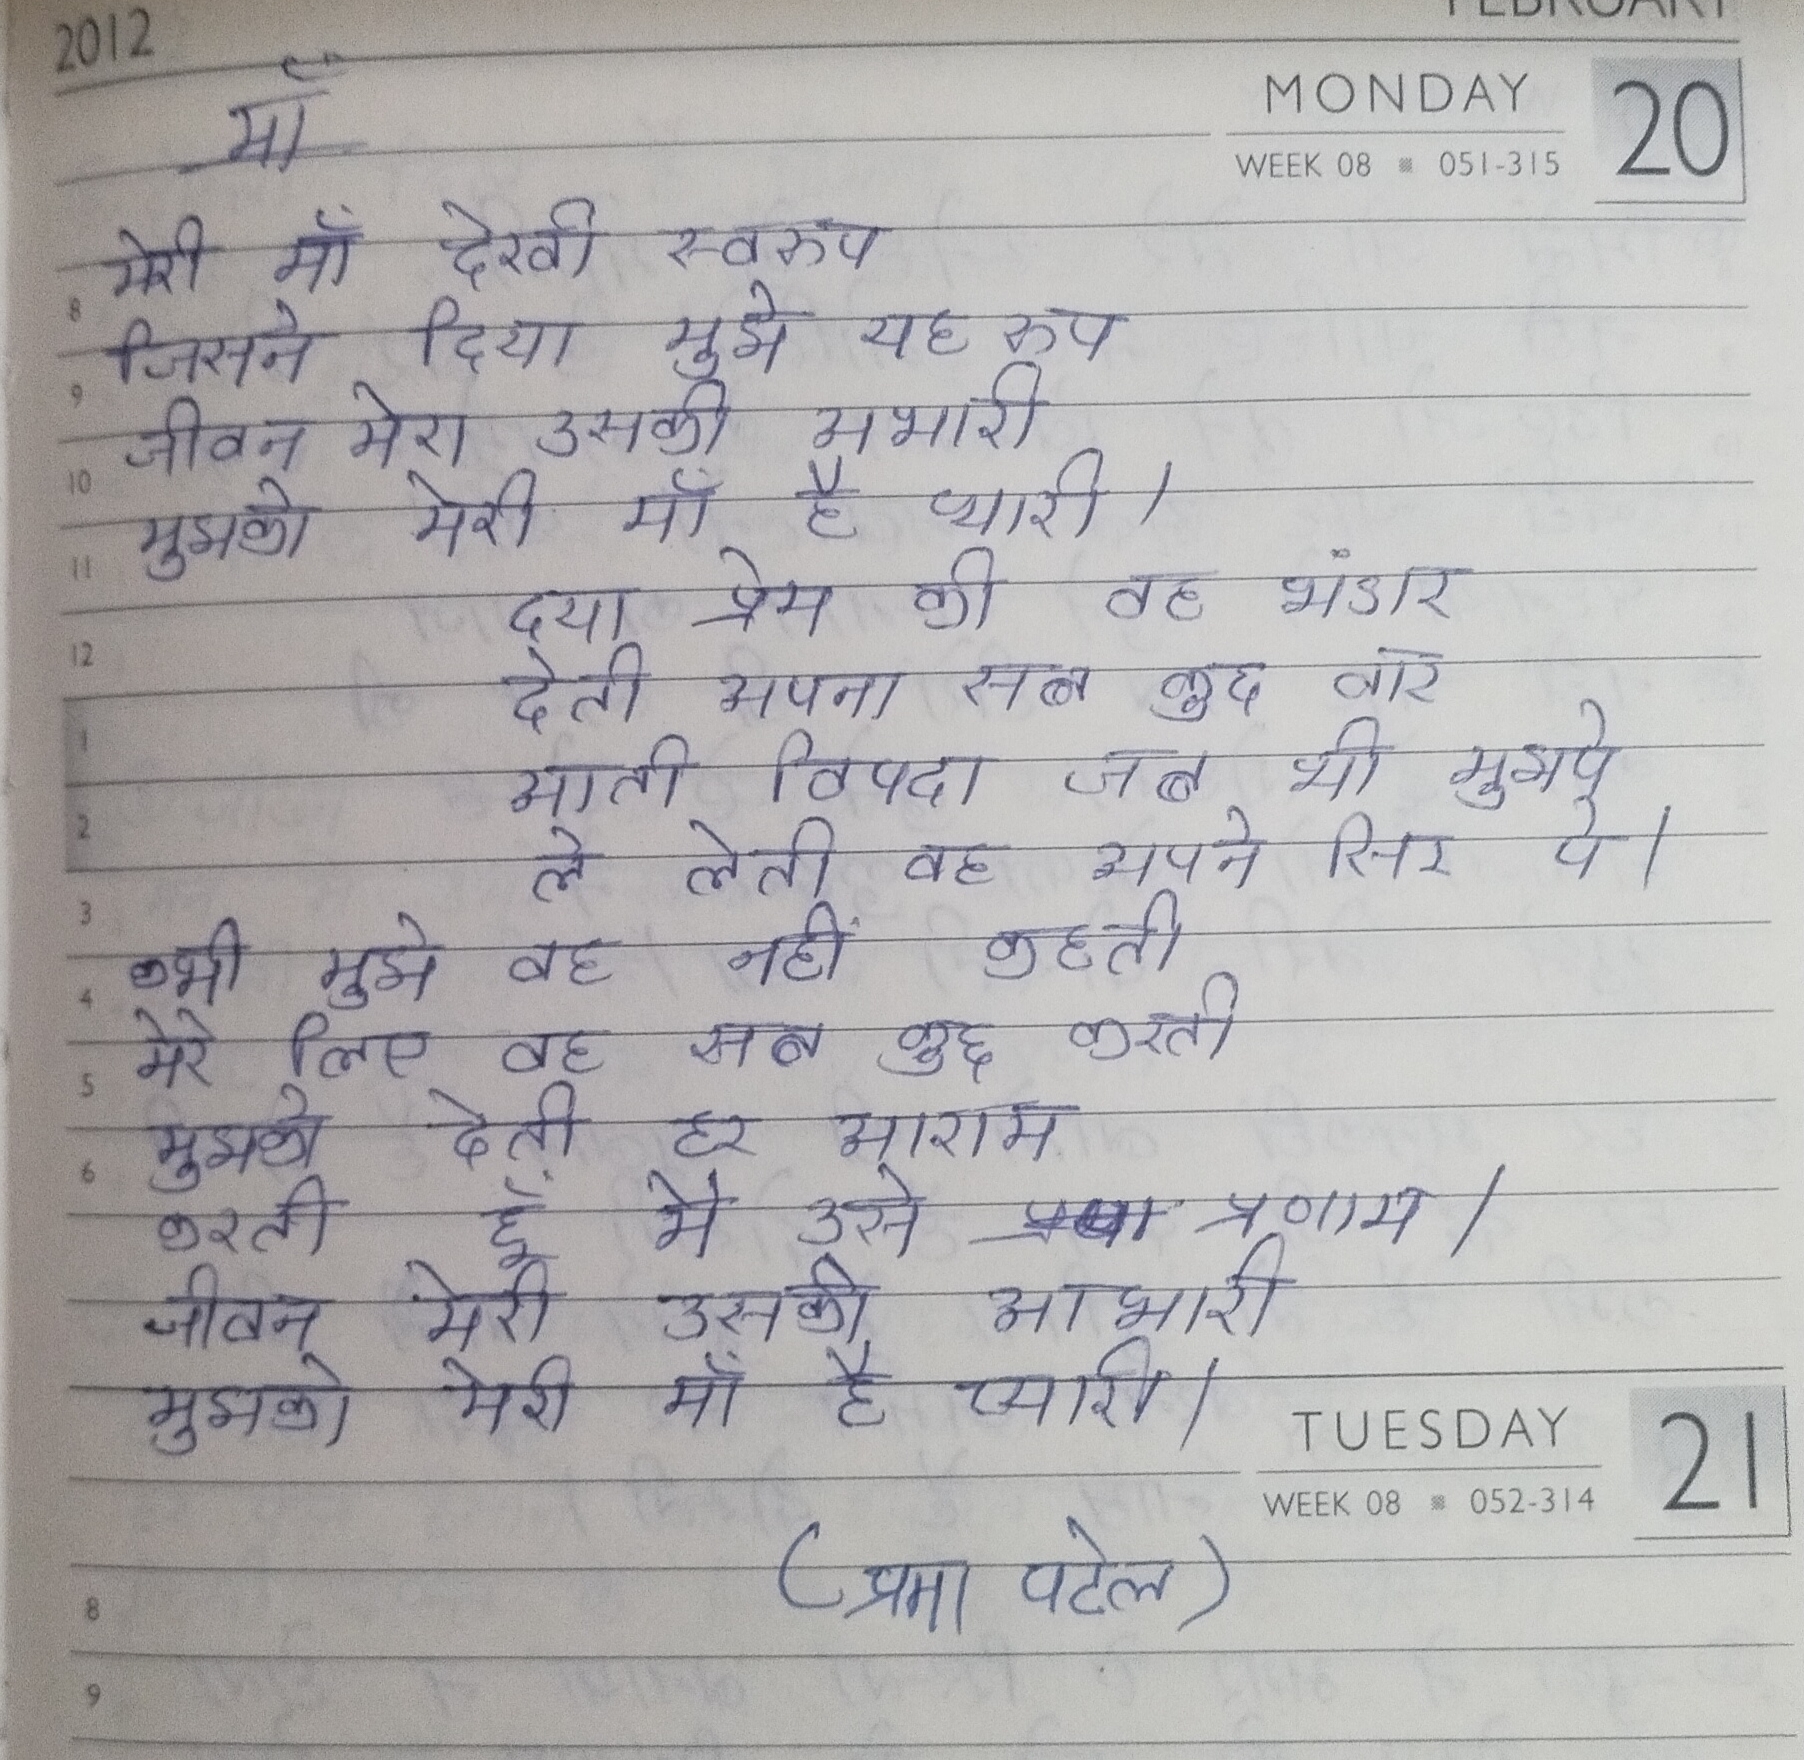 2012
FEBRUARY
MONDAY 20
WEEK 08 ▪ 051-315
माँ
मेरी माँ देखी स्वरुप
जिसने दिया मुझे यह रुप
जीवन मेरा उसकी अभारी
मुझको मेरी माँ है प्यारी।
दया प्रेम की वह भंडार
देती अपना सब कुछ वार
आती विपदा जब भी मुझपे
ले लेती वह अपने सिर पे।
कभी मुझे वह नहीं कहती
मेरे लिए वह सब कुछ करती
मुझको देती हर आराम
करती हूँ मै उसे प्रणाम।
जीवन मेरी उसकी आभारी
मुझको मेरी माँ है प्यारी।
TUESDAY 21
WEEK 08 ▪ 052-314
(प्रमा पटेल)
8
9
10
11
12
1
2
3
4
5
6
8
9